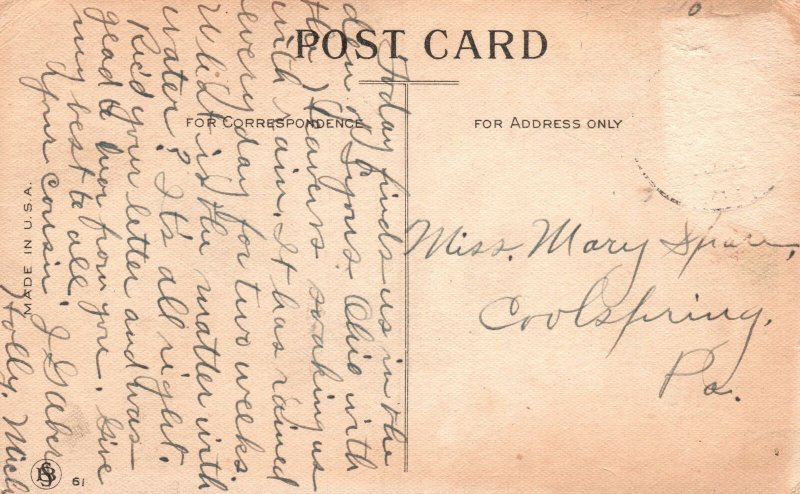 POST CARD
FOR CORRESPONDENCE
FOR ADDRESS ONLY
Today finds us in the
den of Lyons. Ohio with
the Heavens soaking us
with rain. It has rained
every day for two weeks.
What is the matter with
water? It's all right.
Rec'd your letter and was
glad to hear from you. Give
my best to all.
Your cousin. J
Holly, Mich
Miss. Mary
Coolspring,
Pa.
MADE IN U.S.A.
61